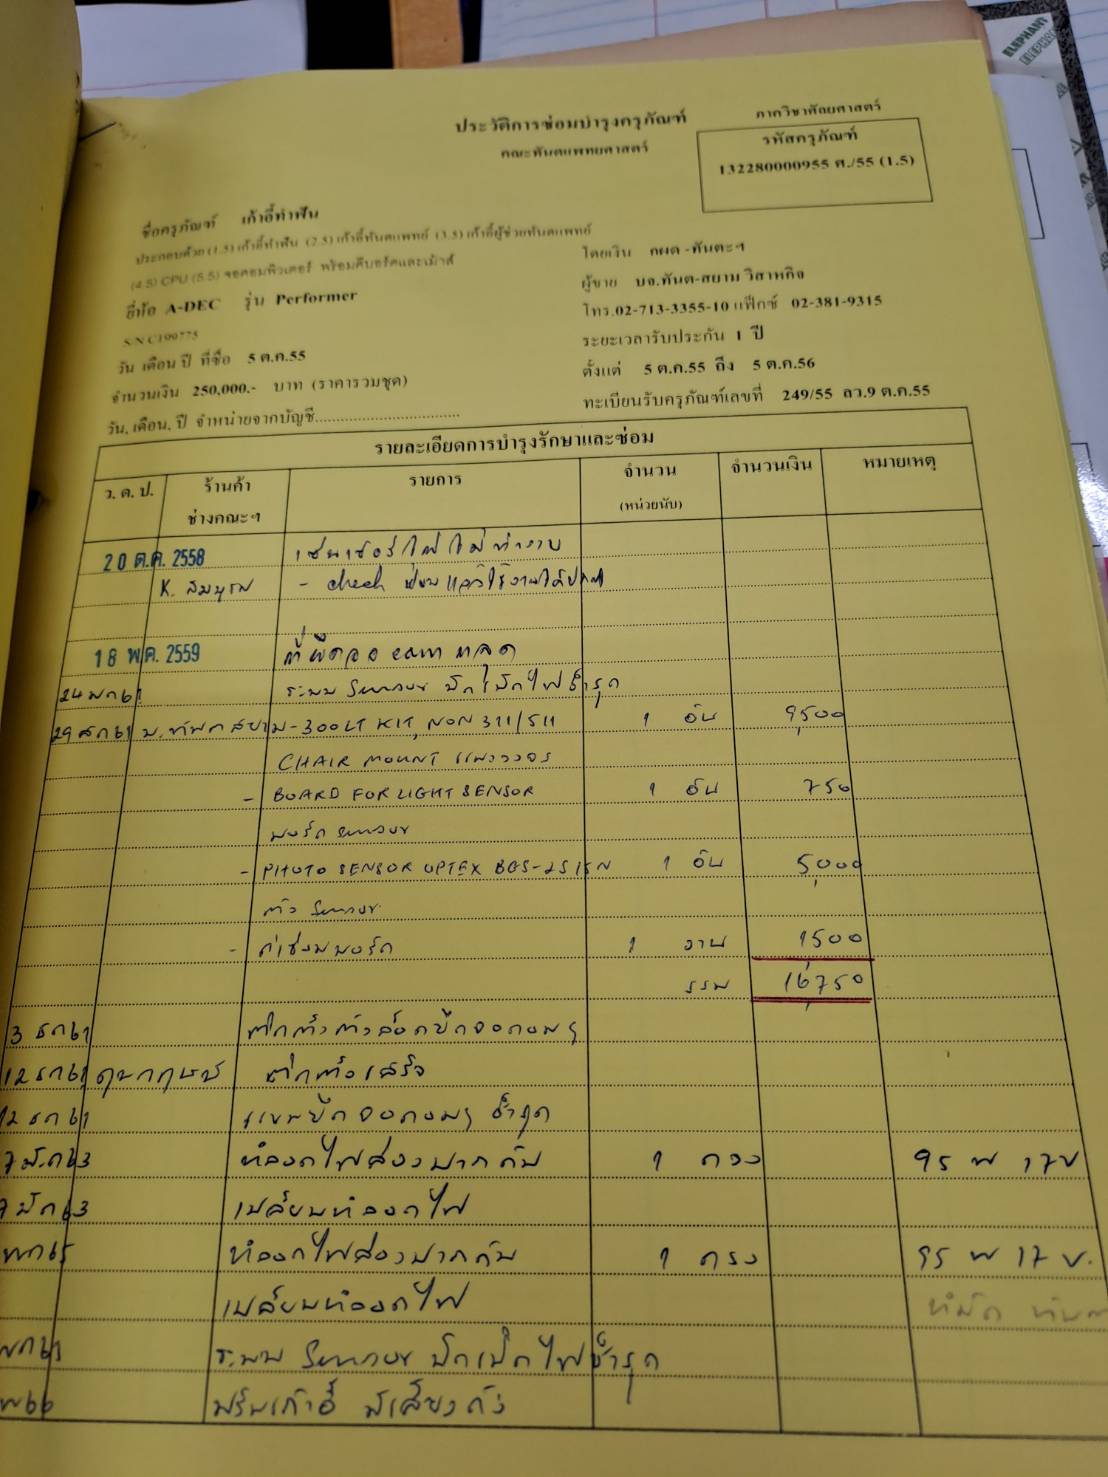 ELEPHANT
ประวัติการซ่อมบำรุงครุภัณฑ์
คณะทันตแพทยศาสตร์
ภาควิชาศัลยศาสตร์
รหัสครุภัณฑ์
132280000955 ศ./55 (1.5)
ชื่อครุภัณฑ์ เก้าอี้ทำฟัน
ประกอบด้วย (1.5) เก้าอี้ทำฟัน (2.5) เก้าอี้ทันตแพทย์ (3.5) เก้าอี้ผู้ช่วยทันตแพทย์
(4.5) CPU (5.5) จอคอมพิวเตอร์ พร้อมคีบอร์ดและเม้าส์
ยี่ห้อ A-DEC รุ่น Performer
S/N C199775
วัน เดือน ปี ที่ซื้อ 5 ต.ค.55
จำนวนเงิน 250,000.- บาท (ราคารวมชุด)
วัน, เดือน, ปี จำหน่ายจากบัญชี
โดยเงิน กผด -ทันตะฯ
ผู้ขาย บจ.ทันต-สยาม วิสาหกิจ
โทร.02-713-3355-10 แฟ็กซ์ 02-381-9315
ระยะเวลารับประกัน 1 ปี
ตั้งแต่ 5 ต.ค.55 ถึง 5 ต.ค.56
ทะเบียนรับครุภัณฑ์เลขที่ 249/55 ลว.9 ต.ค.55
รายละเอียดการบำรุงรักษาและซ่อม
ว. ด. ป. ร้านค้า ช่างคณะฯ รายการ จำนวน (หน่วยนับ) จำนวนเงิน หมายเหตุ
20 ต.ค. 2558 เซนเซอร์ไฟไม่ทำงาน
K. สมบูรณ์ - check ซ่อมแล้วใช้งานได้ปกติ
18 พ.ค. 2559 ที่ยึดจอ คอม หลุด
ระบบ Sensor ปิดเปิดไฟชำรุด
บ.ทันตสยาม - 300LT KIT, NON 311/511 1 อัน 9,500
CHAIR MOUNT แผงวงจร
- BOARD FOR LIGHT SENSOR 1 อัน 750
บอร์ด sensor
- PHOTO SENSOR OPTEX BGS-2S15N 1 อัน 5,000
ตัว Sensor
- ค่าซ่อมบอร์ด 1 งาน 1,500
รวม 16,750
3 ธค 61 ติดตั้งตัวล็อกยึดจอคอมฯ
12 ธค 61 ติดตั้งเสร็จ
12 ธค 61 แขนยึดจอคอมฯ ชำรุด
หลอดไฟส่องปากดับ 1 ดวง 95 W 17 V
เปลี่ยนหลอดไฟ
หลอดไฟส่องปากดับ 1 ดวง 95 W 17 V.
เปลี่ยนหลอดไฟ
ระบบ Sensor ปิดเปิดไฟชำรุด
ปรับเก้าอี้ มีเสียงดัง